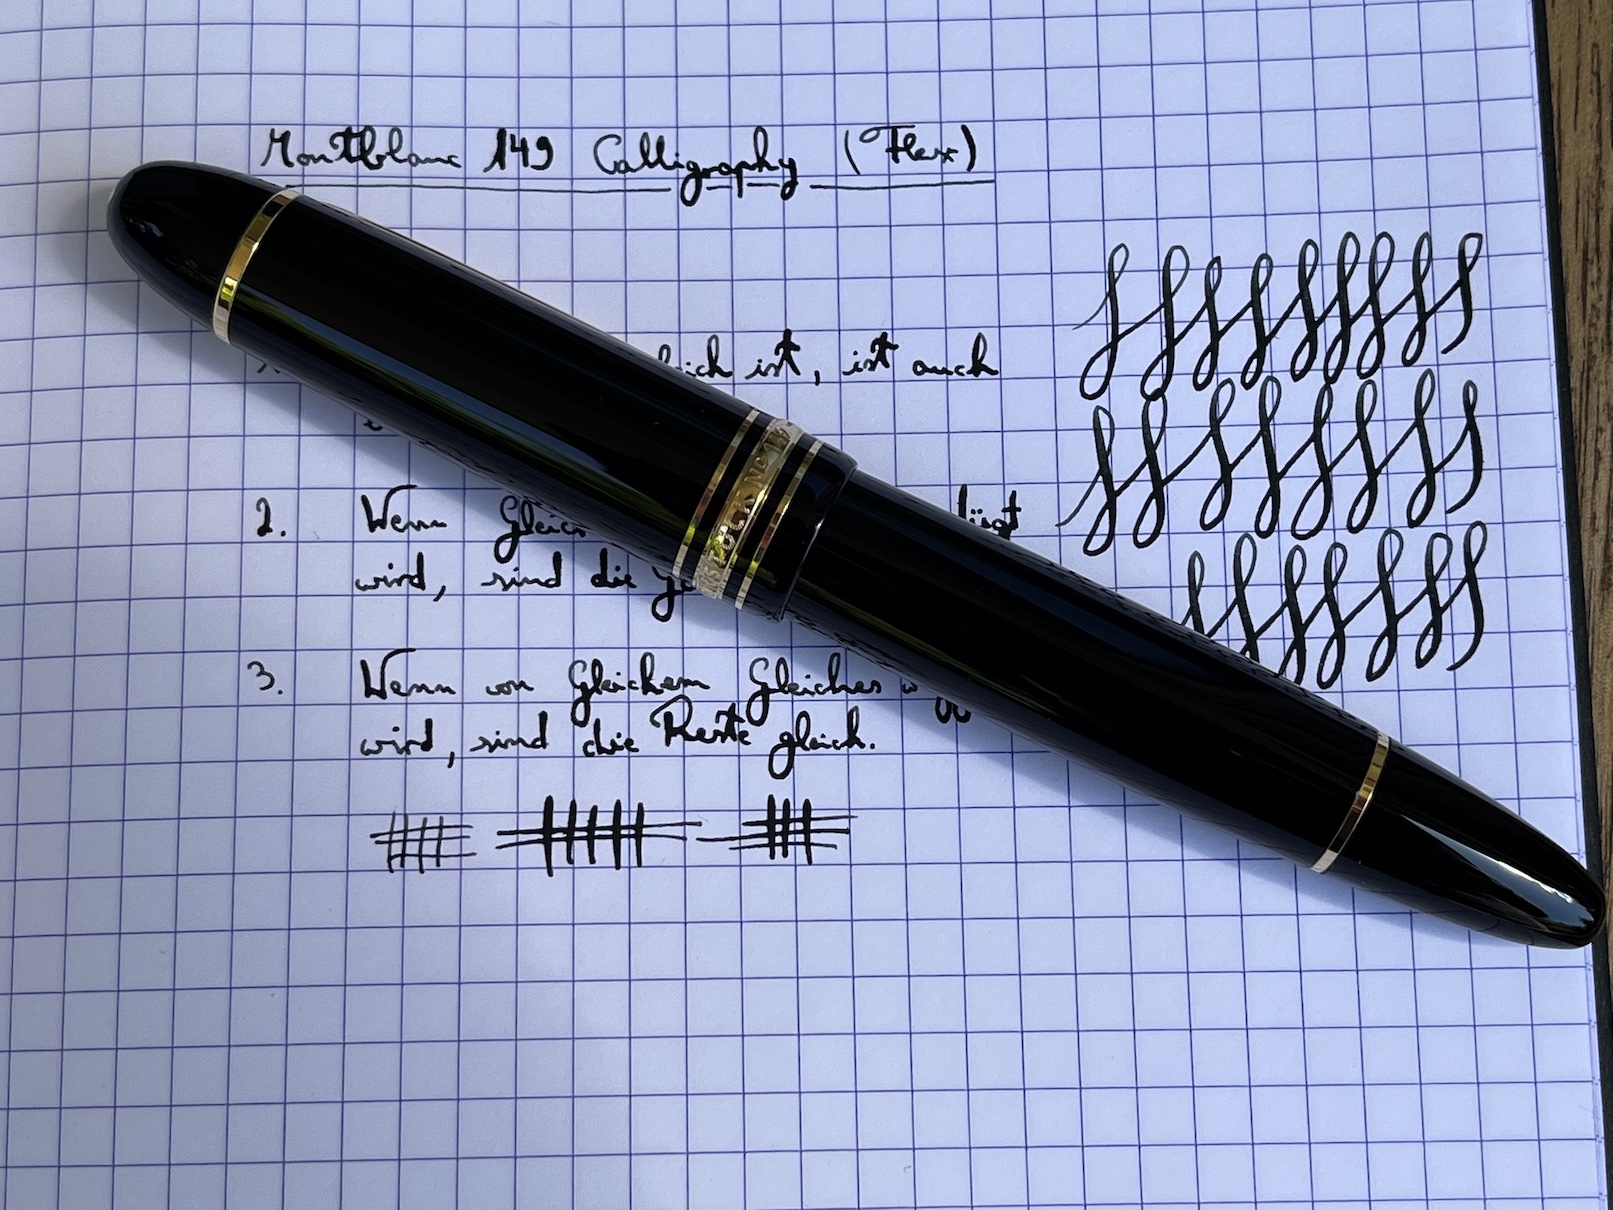 Montblanc 149 Calligraphy (Flex)
ist, ist auch
2. Wenn
wird, sind die
3. Wenn von Gleichem Gleiches
wird, sind die Reste gleich.